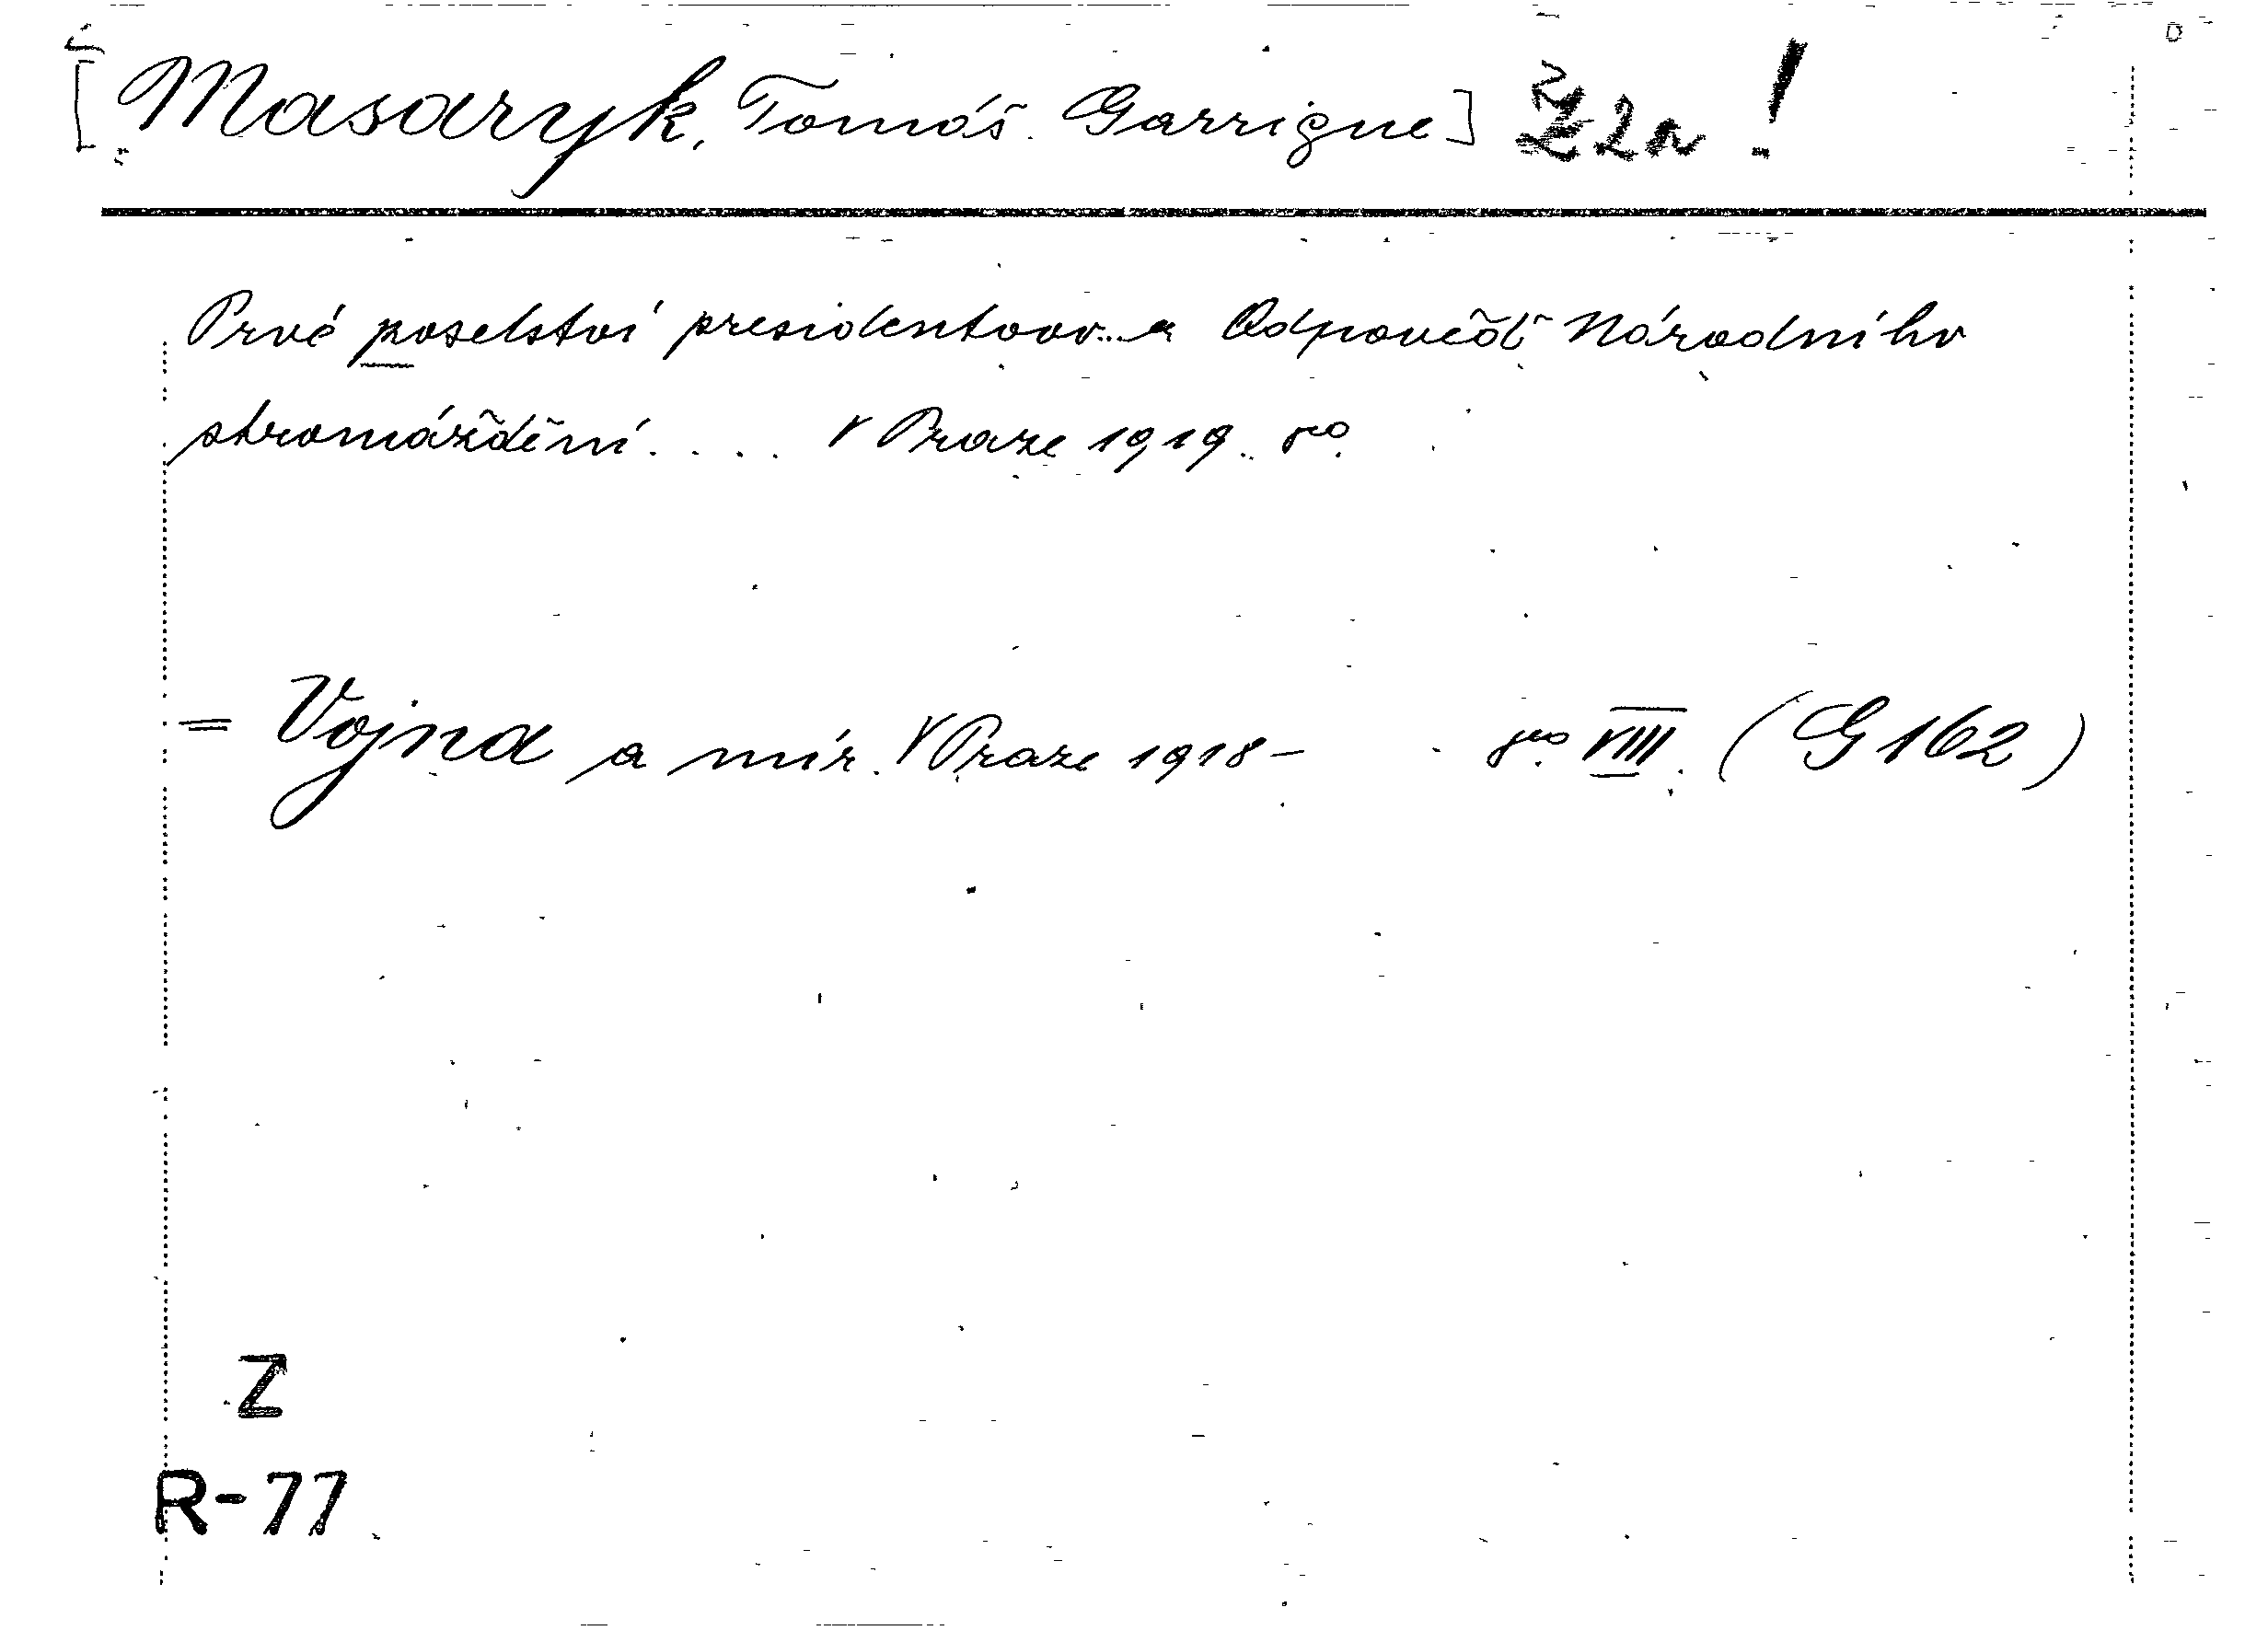 [Masaryk, Tomáš Garrigue] Z 2a !
Prvé poselství presidentovo... a Odpověď Národního
shromáždění.... V Praze 1919. 8°.
= Vojna a mír. V Praze 1918 - 8° VIII. (G 162)
Z
R-77